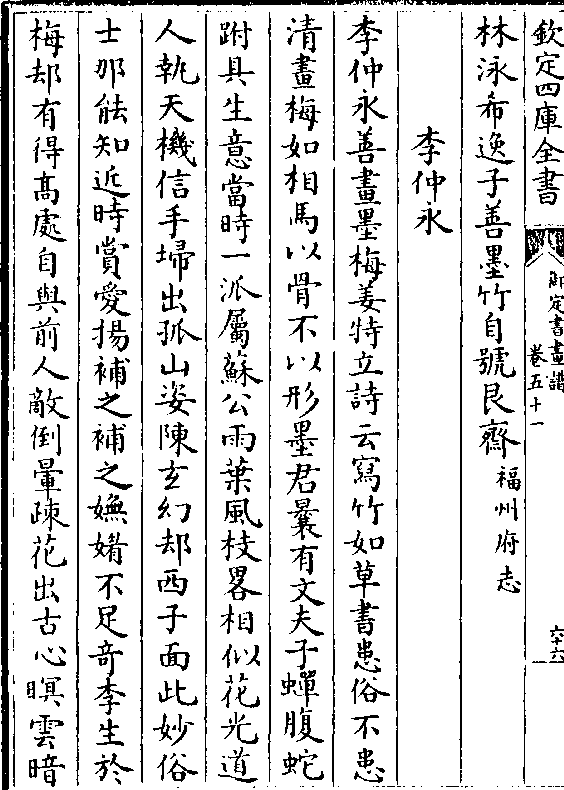 欽定四庫全書
御定書畫譜
卷五十一
六十六
林泳希逸子善墨竹自號艮齋福州府志
李仲永
李仲永善畫墨梅姜特立詩云寫竹如草書患俗不患
清畫梅如相馬以骨不以形墨君曩有文夫子蟬腹蛇
跗具生意當時一派屬蘇公雨葉風枝畧相似花光道
人執天機信手埽出孤山姿陳玄幻却西子面此妙俗
士那能知近時賞愛揚補之補之嫵媚不足奇李生於
梅却有得髙處自與前人敵倒暈疎花出古心暝雲暗